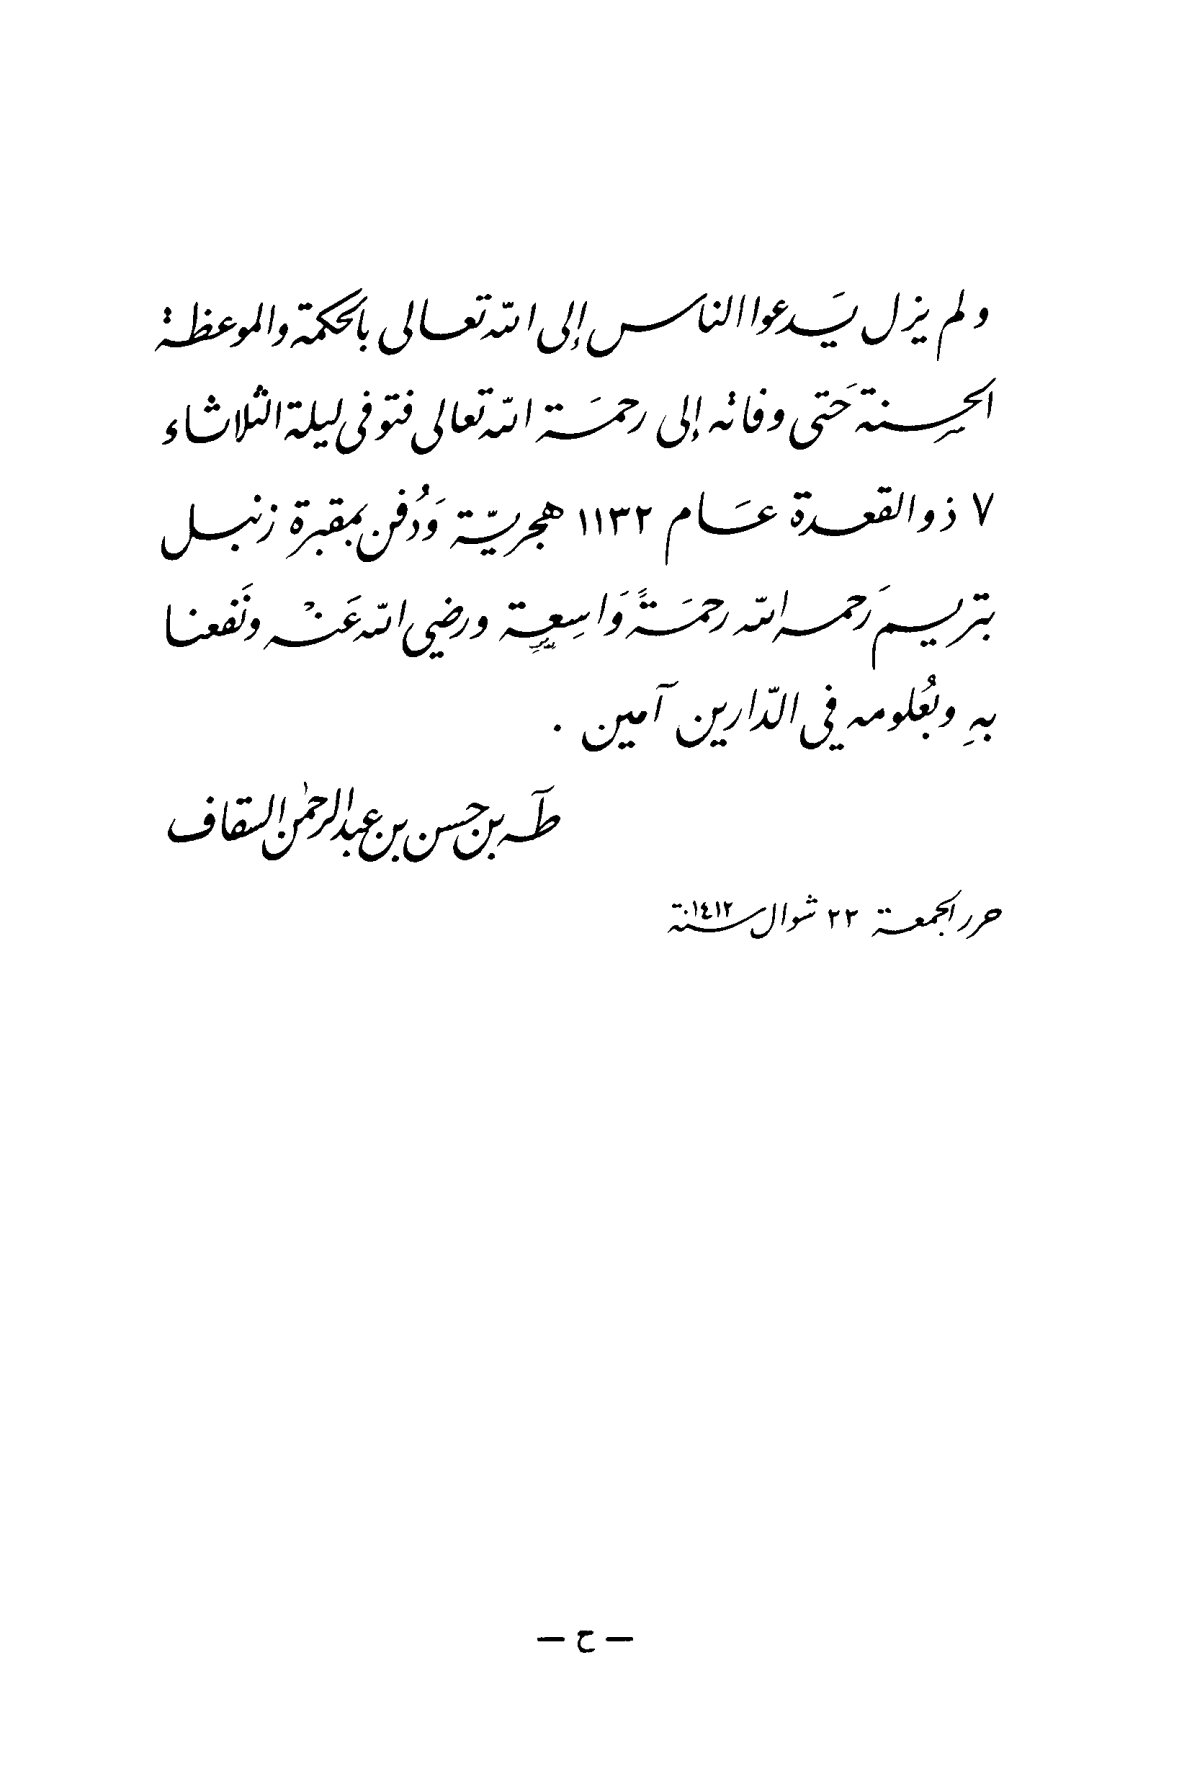 ولم يزل يَدعوا الناس إلى اللّه تعالى بالحكمة والموعظة
الحسِنة حَتى وفاته إلى رحمَة اللّه تعالى فتوفى ليلة الثلاثاء
٧ ذو القعدة عَام ١١٣٢ هجريّة وَدُفن بمقبرة زنبل
بتريم رَحمه اللّه رحمَةً وَاسِعة ورضي اللّه عَنْه ونَفعنا
بهِ وبعُلومه في الدّارين آمين .
طٓه بن حسن بن عبد الرحمٰن السقاف
حرر الجمعة ٢٢ شوال سنة ١٤١٢
— ح —